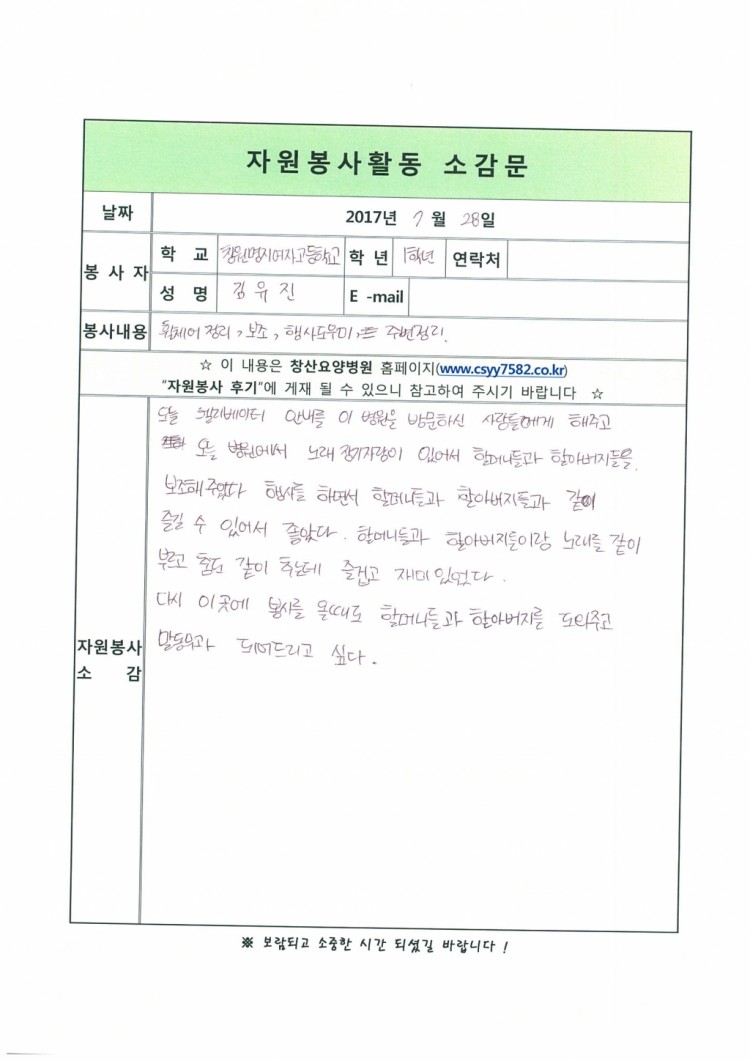 자원봉사활동 소감문
날짜 2017년 7 월 28일
봉사자 학 교 창원명지여자고등학교 학 년 1학년 연락처
성 명 김유진 E -mail
봉사내용 휠체어 정리, 보조, 행사도우미, 주변정리.
☆ 이 내용은 창산요양병원 홈페이지(www.csyy7582.co.kr)
"자원봉사 후기"에 게재 될 수 있으니 참고하여 주시기 바랍니다 ☆
자원봉사
소 감
오늘 엘리베이터 안내를 이 병원을 방문하신 사람들에게 해주고
오늘 병원에서 노래 장기자랑이 있어서 할머니들과 할아버지들을
보조해주었다 행사를 하면서 할머니들과 할아버지들과 같이
즐길 수 있어서 좋았다. 할머니들과 할아버지들이랑 노래를 같이
부르고 춤도 같이 추는데 즐겁고 재미있었다.
다시 이곳에 봉사를 올때도 할머니들과 할아버지를 도와주고
말동무가 되어드리고 싶다.
※ 보람되고 소중한 시간 되셨길 바랍니다 !